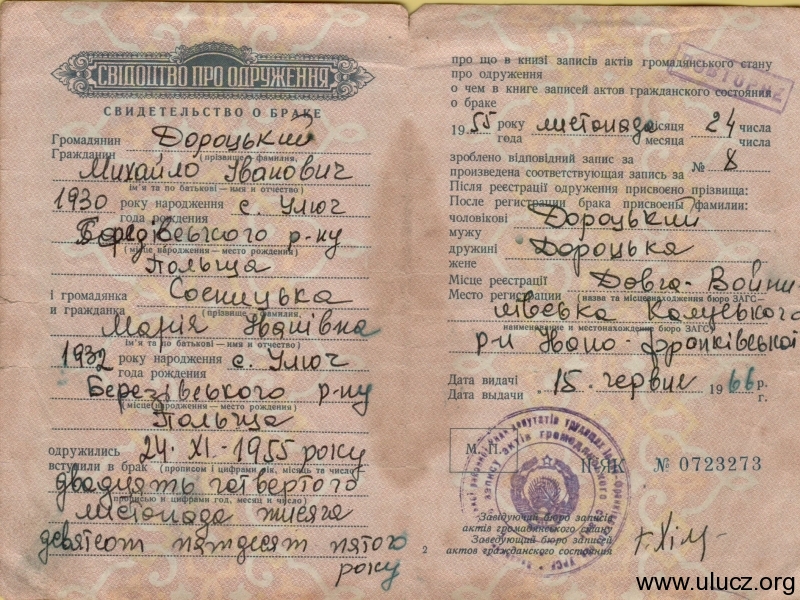 СВІДОЦТВО ПРО ОДРУЖЕННЯ
СВИДЕТЕЛЬСТВО О БРАКЕ
Громадянин Дороцький
Гражданин (прізвище — фамилия,
Михайло Іванович
ім'я та по батькові — имя и отчество)
1930 року народження с. Улюч
года рождения
Березівського р-ну
(місце народження — место рождения)
Польща
і громадянка Сосницька
и гражданка (прізвище — фамилия,
Марія Іванівна
ім'я та по батькові — имя и отчество)
1932 року народження с. Улюч
года рождения
Березівського р-ну
(місце народження — место рождения)
Польща
одружились 24. XI. - 1955 року
вступили в брак (прописом і цифрами рік, місяць та число)
двадцять четвертого
прописью и цифрами год, месяц и число)
листопада тисяча
девятсот пятдесят пятого
року
про що в книзі записів актів громадянського стану
про одруження
о чем в книге записей актов гражданского состояния
о браке
ПОВТОРНЕ
1955 року листопада місяця 24 числа
года месяца числа
зроблено відповідний запис за
произведена соответствующая запись за № 8
Після реєстрації одруження присвоєно прізвища:
После регистрации брака присвоены фамилии:
чоловікові Дороцький
мужу
дружині Дороцька
жене
Місце реєстрації Довга-Войни-
Место регистрации (назва та місцезнаходження бюро ЗАГС—
лівська Калуського
наименование и местонахождение бюро ЗАГС)
р-н Івано-франківської
Дата видачі 15. червня 1966 р.
Дата выдачи г.
М. П.
II-ЯК № 0723273
Завідуючий бюро записів
актів громадянського стану
Заведующий бюро записей
актов гражданского состояния
2
www.ulucz.org